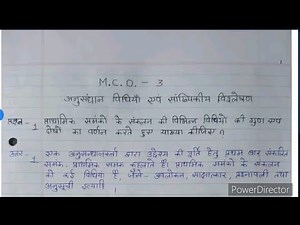 M.C.O. - 3
अनुसंधान विधियाँ एवं सांख्यिकीय विश्लेषण
प्रश्न- 1 प्राथमिक समंकों के संकलन की विभिन्न विधियों की गुण एवं
दोषों का वर्णन करते हुए व्याख्या कीजिए।
उत्तर- 1 एक अनुसंधानकर्ता द्वारा उद्देश्य की पूर्ति हेतु प्रथम बार संकलित
समंक प्राथमिक समंक कहलाते हैं। प्राथमिक समंकों के संकलन
की कई विधियां हैं, जैसे- अवलोकन, साक्षात्कार, प्रश्नावली तथा
अनुसूची इत्यादि।
PowerDirector